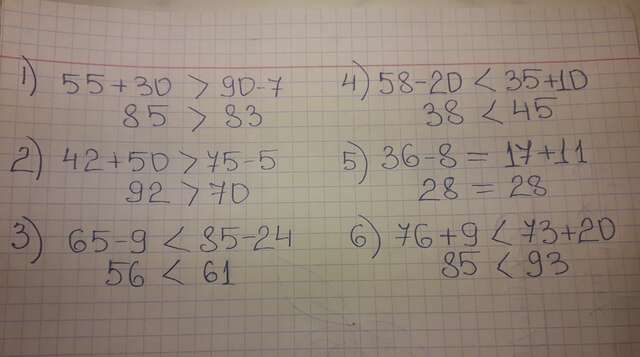 1) 55+30 > 90-7
85 > 83
2) 42+50 > 75-5
92 > 70
3) 65-9 < 85-24
56 < 61
4) 58-20 < 35+10
38 < 45
5) 36-8 = 17+11
28 = 28
6) 76+9 < 73+20
85 < 93